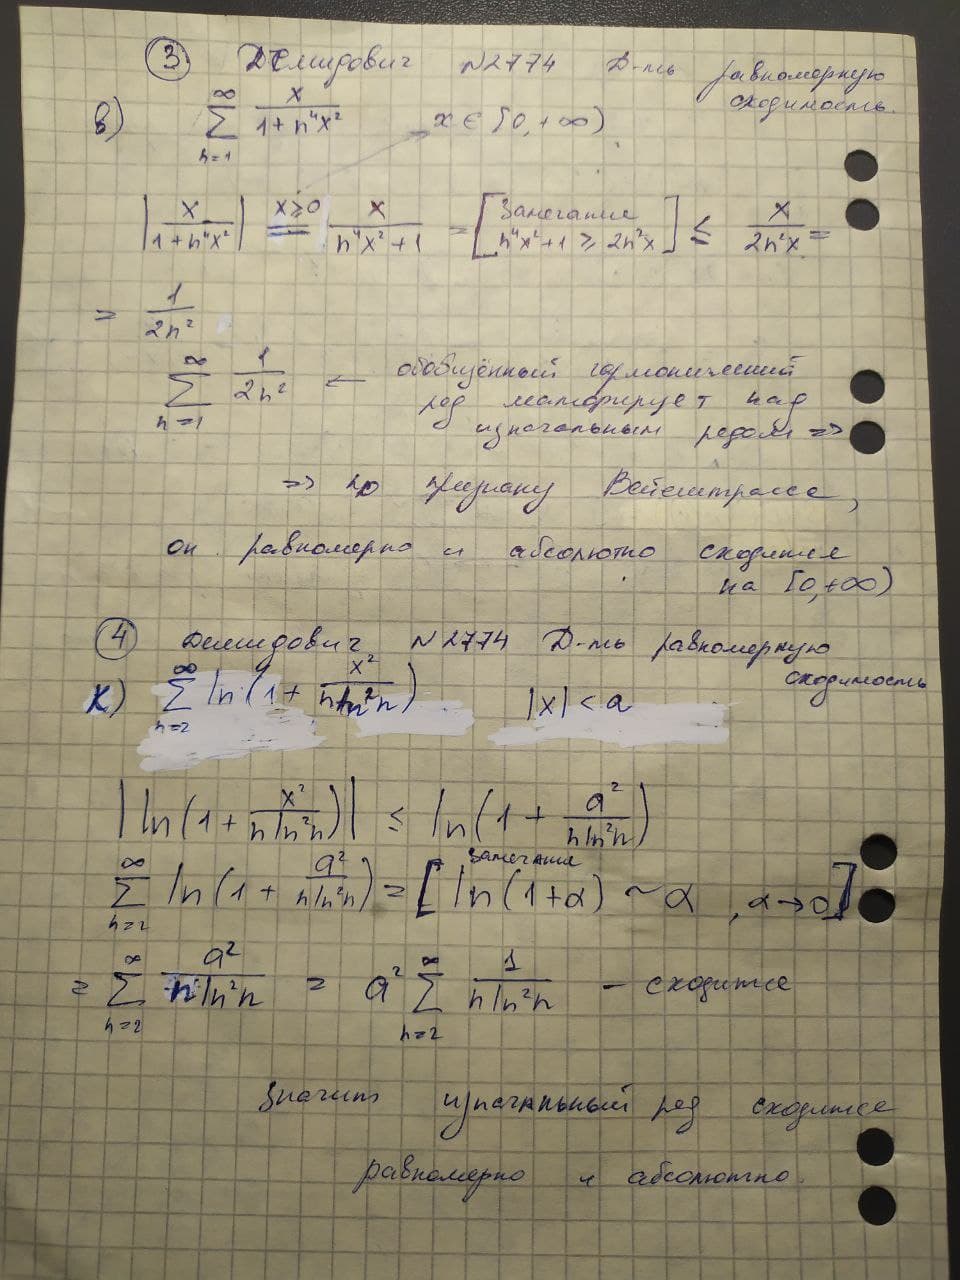 ③ Демидович N2774 Д-ть равномерную
сходимость.
в) ∞ ∑ n=1 x/(1+n⁴x²) x ∈ [0,+∞)
|x/(1+n⁴x²)| x≥0 = x/(n⁴x²+1) = [Замечание n⁴x²+1 ≥ 2n²x] ≤ x/(2n²x) =
= 1/(2n²)
∞ ∑ n=1 1/(2n²) ← обобщённый гармонический
ряд мажорирует над
изначальным рядом =>
=> по признаку Вейештрасса,
он равномерно и абсолютно сходится
на [0,+∞)
④ Демидович N2774 Д-ть равномерную
сходимость
к) ∞ ∑ n=2 ln(1 + x²/(n ln²n)) |x| < a
|ln(1 + x²/(n ln²n))| ≤ ln(1 + a²/(n ln²n))
∞ ∑ n=2 ln(1 + a²/(n ln²n)) = [Замечание ln(1+α) ~ α, α→0]
= ∞ ∑ n=2 a²/(n ln²n) = a² ∞ ∑ n=2 1/(n ln²n) – сходится
Значит изначальный ряд сходится
равномерно и абсолютно.